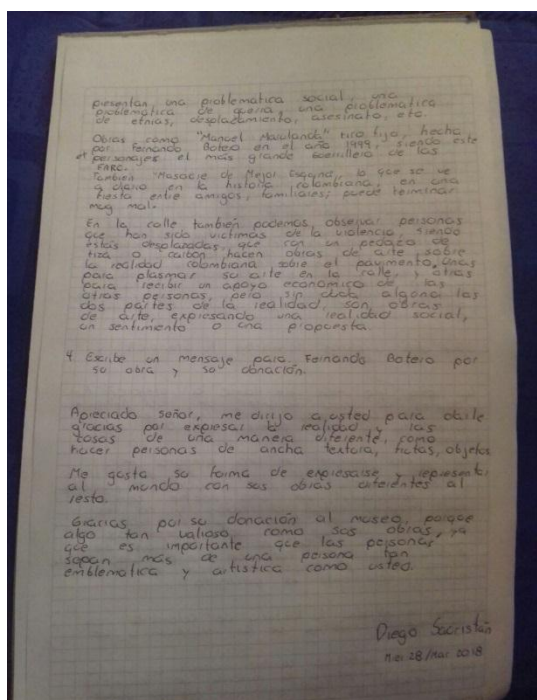 presentan, una problematica social, una
problemática de guerra, una problemática
de etnias, desplazamiento, asesinato, etc.
Obras como "Manuel Marulanda" tiro fijo, hecha
por Fernando Botero en el año 1999, siendo este
el personajes el más grande guerrillero de las
FARC.
También "Masacre de Mejor Esquina, lo que se ve
a diario en la historia colombiana, en una
fiesta entre amigos, familiares; puede terminar
muy mal.
En la calle también podemos, observar personas
que han sido victimas de la violencia, siendo
estás desplazadas, que con un pedazo de
tiza o carbón hacen obras de arte sobre
la realidad colombiana sobre el pavimento, unas
para plasmar su arte en la calle, y otras
para recibir un apoyo económico de las
otras personas, pero sin duda alguna las
dos partes de la realidad, son obras
de arte, expresando una realidad social,
un sentimiento o una propuesta.
4. Escribe un mensaje para Fernando Botero por
su obra y su donación.
Apreciado señor, me dirijo a usted para darle
gracias por expresar la realidad y las
cosas de una manera diferente, como
hacer personas de ancha textura, frutas, objetos.
Me gusta su forma de expresarse y representar
al mundo con sus obras diferentes al
resto.
Gracias por su donación al museo, porque
algo tan valioso como sus obras, ya
que es importante que las personas
sepan más de una persona tan
emblematica y artistica como usted.
Diego Sacristán
28/Mar 2018